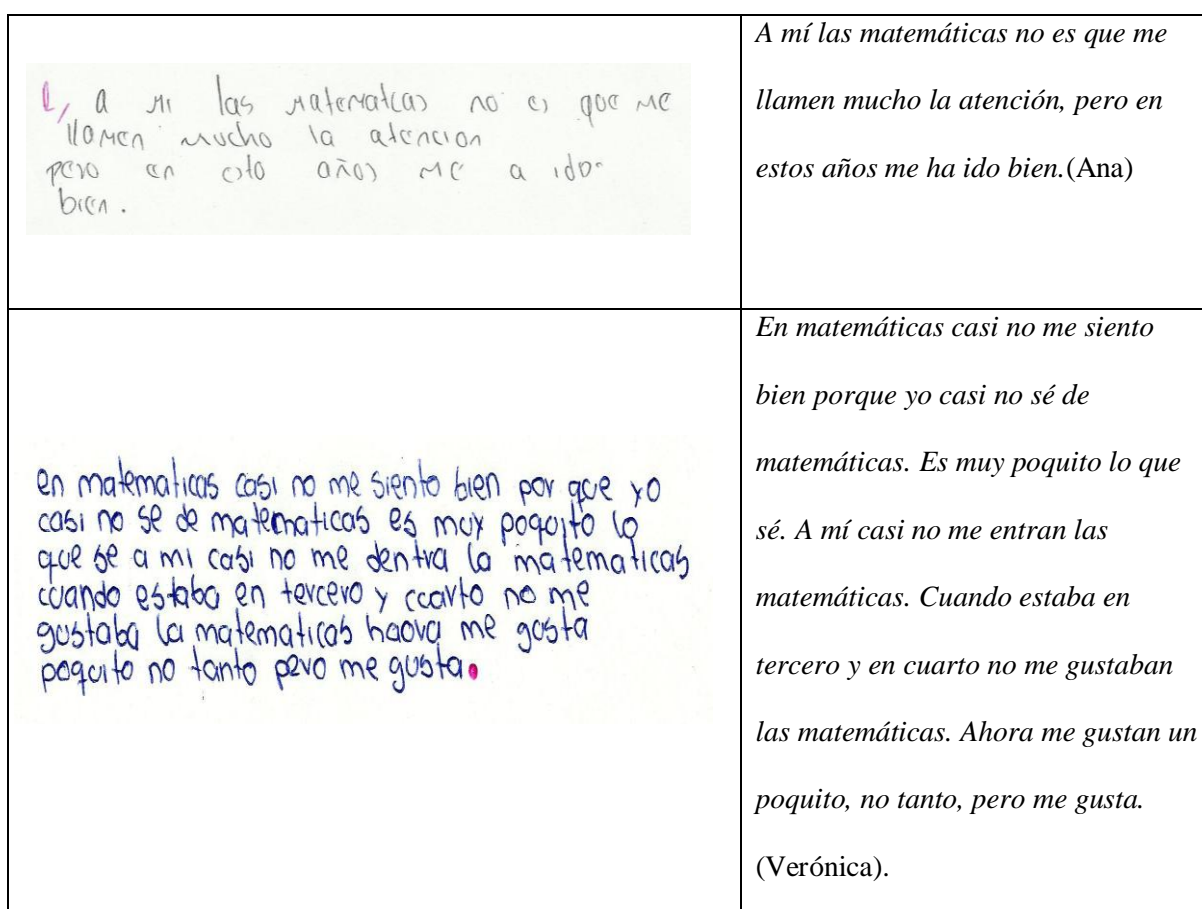 l, a mi las matematcas no es que me
llamen mucho la atencion
pero en esto años me a ido
bien.
A mí las matemáticas no es que me
llamen mucho la atención, pero en
estos años me ha ido bien.(Ana)
en matematicas casi no me siento bien por que yo
casi no se de matematicas es muy poquito lo
que se a mi casi no me dentra la matematicas
cuando estaba en tercero y ccarto no me
gustaba la matematicas haora me gosta
poquito no tanto pero me gusta.
En matemáticas casi no me siento
bien porque yo casi no sé de
matemáticas. Es muy poquito lo que
sé. A mí casi no me entran las
matemáticas. Cuando estaba en
tercero y en cuarto no me gustaban
las matemáticas. Ahora me gustan un
poquito, no tanto, pero me gusta.
(Verónica).